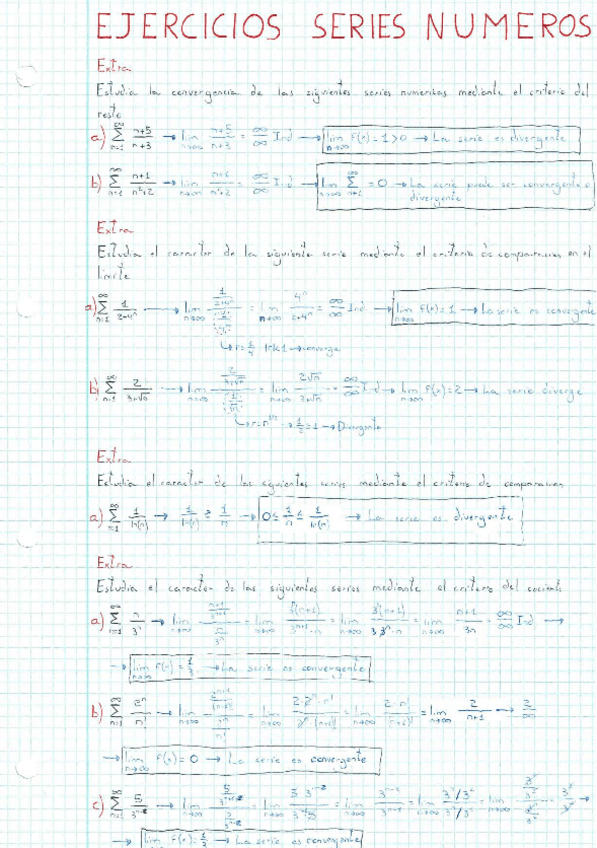 EJERCICIOS SERIES NUMEROS
Extra
Estudia la convergencia de las siguientes series numericas mediante el criterio del
resto
a) ∑ n=1 ∞ n+5/n+3 → lim n→∞ n+5/n+3 = ∞/∞ Ind → lim n→∞ f(x) = 1 > 0 → La serie es divergente
b) ∑ n=1 ∞ n+1/n²+2 → lim n→∞ n+1/n²+2 = ∞/∞ Ind → lim n→∞ ∑ n=1 = 0 → La serie puede ser convergente o
divergente
Extra
Estudia el caracter de la siguiente serie mediante el criterio de comparacion en el
limite
a) ∑ n=1 ∞ 1/2+4ⁿ → lim n→∞ = lim n→∞ 4ⁿ/2+4ⁿ = ∞/∞ Ind → lim n→∞ f(x) = 1 → La serie es convergente
↳ r = 1/4 |r|<1 → converge
b) ∑ n=1 ∞ 2/3+√n → lim n→∞ = lim n→∞ 2√n/3+√n = ∞/∞ Ind → lim n→∞ f(x) = 2 → La serie diverge
→ Divergente
Extra
Estudia el caracter de las siguientes series mediante el criterio de comparacion
a) ∑ n=1 ∞ 1/ln(n) → 1/ln(n) ≥ 1/n → 0 ≤ 1/n ≤ 1/ln(n) → La serie es divergente
Extra
Estudia el caracter de las siguientes series mediante el criterio del cociente
a) ∑ n=1 ∞ n/3ⁿ → lim n→∞ n+1/3ⁿ⁺¹ / n/3ⁿ = lim n→∞ 3ⁿ(n+1)/3ⁿ⁺¹·n = lim n→∞ 3ⁿ(n+1)/3·3ⁿ·n = lim n→∞ n+1/3n = ∞/∞ Ind →
→ lim n→∞ f(x) = 1/3 → La serie es convergente
b) ∑ n=1 ∞ 2ⁿ/n! → lim n→∞ 2ⁿ⁺¹/(n+1)! / 2ⁿ/n! = lim n→∞ 2·2ⁿ·n!/2ⁿ·(n+1)! = lim n→∞ 2·n!/(n+1)! = lim n→∞ 2/n+1 → 2/∞
→ lim n→∞ f(x) = 0 → La serie es convergente
c) ∑ n=1 ∞ → lim n→∞ = lim n→∞ = lim n→∞ = lim n→∞ = lim n→∞ →
→ lim n→∞ f(x) = 1/3 → La serie es convergente